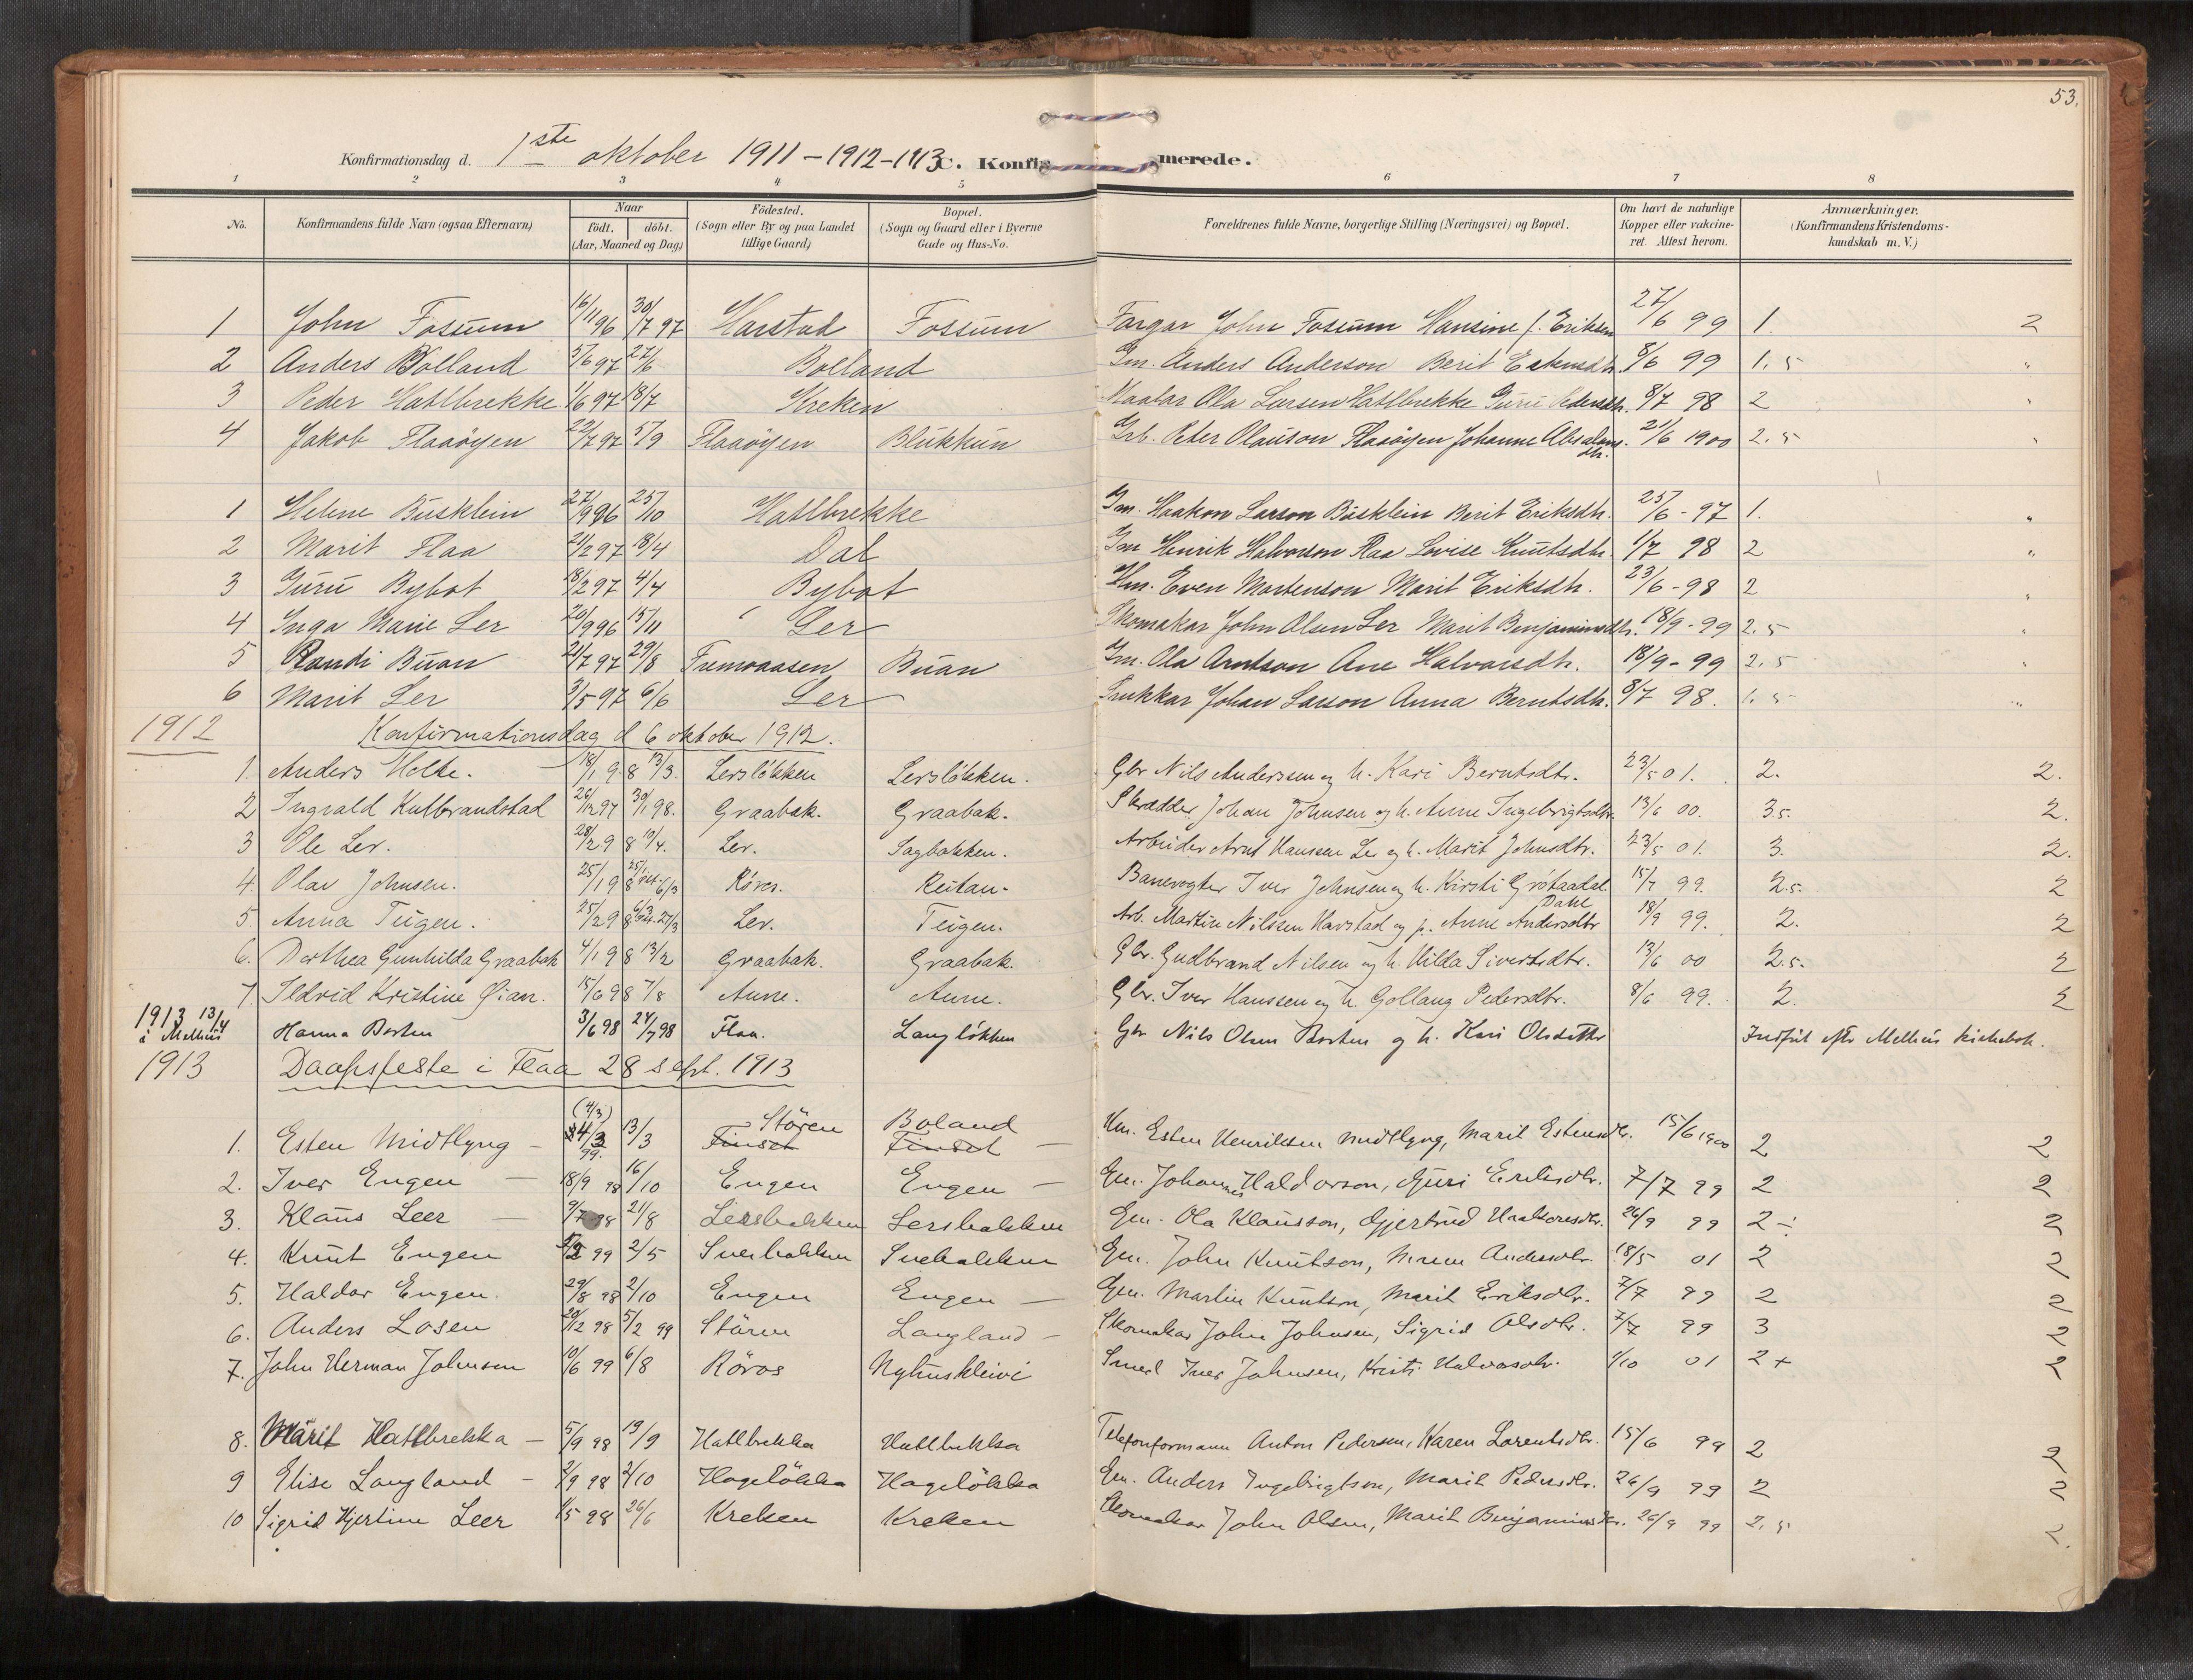 53.
Konfirmationsdag d. 1ste oktober 1911-1912-1913 C. Konfirmerede.
1 2 3 4 5 6 7 8
No. Konfirmandens fulde Navn (ogsaa Efternavn) Naar født. døbt. (Aar, Maaned og Dag) Fødested. (Sogn eller By og paa Landet tillige Gaard) Bopæl. (Sogn og Gaard eller i Byerne Gade og Hus-No. Forældrenes fulde Navne, borgerlige Stilling (Næringsvei) og Bopæl. Om havt de naturlige Kopper eller vakcineret. Attest herom. Anmærkninger. (Konfirmandens Kristendomskundskab m. V.)
1 John Fossum 16/11 96 30/7 97 Harstad Fossum Fargar John Fossum Hansine f. Eriksen 27/6 99 1. 2
2 Anders Bolland 5/6 97 27/6 Bolland Gm. Anders Anderson Berit 8/6 99 1.5 "
3 Peder Hatlbrekke 1/6 97 18/7 Kreken Maalar Ola Larsen Hatlbrekke Guru Pedersdtr. 8/7 98 2 "
4 Jakob Flaaöyen 22/7 97 5/9 Flaaöyen Blukkun Grb. Peter Olauson Flaaöyen Johanne Absalonsdtr. 21/6 1900 2.5 "
1 Helene Busklein 27/9 96 25/10 Hatlbrekke Gm. Haakon Larson Busklein Berit Eriksdtr. 25/6 - 97 1. "
2 Marit Flaa 21/2 97 18/4 Dal Gm Henrik Halvorson Flaa Lovise Knutsdtr. 1/7 98 2 "
3 Guru Bybot 18/2 97 4/4 Bybot Hm. Even Mortenson Marit Eriksdtr. 23/6 - 98 2 "
4 Inga Marie Ler 26/9 96 15/11 Ler Skomakar John Olsen Ler Marit Benjaminsdtr. 18/9 - 99 2.5 "
5 Randi Buan 21/7 97 29/8 Fremoaasen Buan Gm. Ola Arntson Ane Halvorsdtr. 18/9 - 99 2.5 "
6 Marit Ler 3/5 97 6/6 Ler Trukkar Johan Larson Anna Berntsdtr. 8/7 98. 1.5 "
1912 Konfirmationsdag d 6 oktober 1912.
1. Anders Holte. 18/1 98 13/3. Lersløkken Lersløkken. Gbr Nils Anderssen og h. Kari Berntsdtr. 23/5 01. 2. 2.
2 Ingvald Kulbrandstad 26/12 97 30/1 98. Graabak. Graabak. Skrædder Johan Johnsen og h. Anne Ingebrigtsdtr. 13/6 00. 3.5. 2.
3 Ole Ler. 28/2 98 10/4. Ler. Sagbakken. Arbeider Arnt Hanssen Ler og h. Marit Johnsdtr. 23/5 01. 3. 2.
4. Olav Johnsen. 25/1 98 6/3 Røros. Reitan. Banevogter Iver Johnsen og h. Kirsti Grøtaadal 15/7 99. 2.5. 2
5. Anna Teigen. 25/2 98 27/3 Ler. Teigen. Arb. Martin Nilssen Harstad og p. Anne Andersdtr Dahl 18/9 99. 2. 2
6. Dorthea Gunhilda Graabak 4/1 98 13/2 Graabak. Graabak. Gbr. Gudbrand Nilsen og h. Hilda Sivertsdtr. 13/6 00 2.5. 2
7. Ildrid Kristine Øian. 15/6 98 7/8 Aune. Aune. Gbr. Iver Hanssen og h. Gollaug Pedersdtr. 8/6 99. 2. 2
1913 13/4 i Melhus Hanna Borten 3/6 98 24/7 98 Flaa. Langløkken Gbr Nils Olsen Borten og h. Kari Olsdatter Indført efter Melhus kirkebok.
1913 Daapsfeste i Flaa 28 sept. 1913
1. Esten Midtlyng - (4/3) 24/3 99. 13/3 Finset Stören Finset Boland - Hm. Esten Henriksen Midtlyng, Marit Estensdtr. 15/6 1900 2 2
2. Iver Engen - 18/9 98 16/10 Engen Engen - Gm. Johannes Haldorson, Guri Eriksdtr. 7/7 99 2 2
3. Klaus Leer - 9/7 98 21/8 Lersbakken Lersbakken Gm. Ola Klausson, Gjertrud Haakonsdtr. 26/9 99 2÷ 2
4. Knut Engen 99 2/5 Svebakken Svebakken Gm. John Knutson, Maren Andersdtr. 18/5 01 2 2
5. Haldor Engen. 29/8 98 2/10 Engen Engen - Gm. Martin Knutson, Marit Eriksdtr. 7/7 99 2 2
6. Anders Losen 20/12 98 5/2 99 Stören Langland - Skomakar John Johnsen, Sigrid Olsdtr. 7/7 99 3 2
7. John Herman Johnsen 10/6 99 6/8 Röros Nyhuskleivi Smed Iver Johnsen, Kristi Halvorsdtr. 1/10 01 2+ 2
8. Marit Hatlbrekka - 5/9 98 19/9 Hatlbrekka Hatlbrekka Telefonformann Anton Pedersen, Karen Lorentsdtr. 15/6 99 2 2
9 Elise Langland - 2/9 98 2/10 Hagelökka Hagelökka Gm. Anders Ingebrigtson, Marit Pedersdtr. 26/9 99 2 2
10 Sigrid Hjertine Leer 1/5 98 26/6 Kreken Kreken Skomakar John Olsen, Marit Benjaminsdtr. 26/9 99 2.5 2.